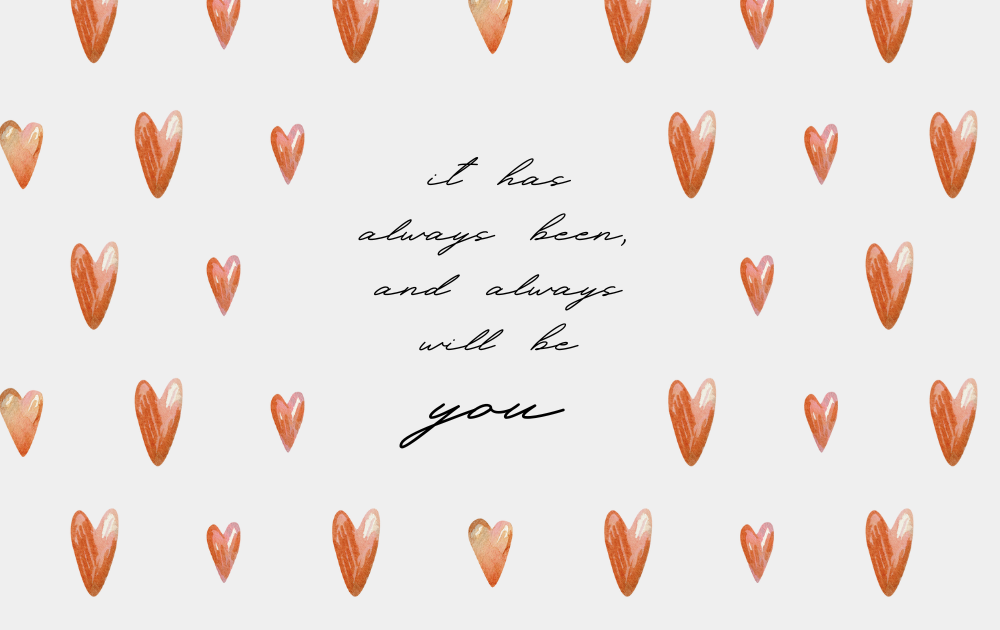 it has
always been,
and always
will be
you